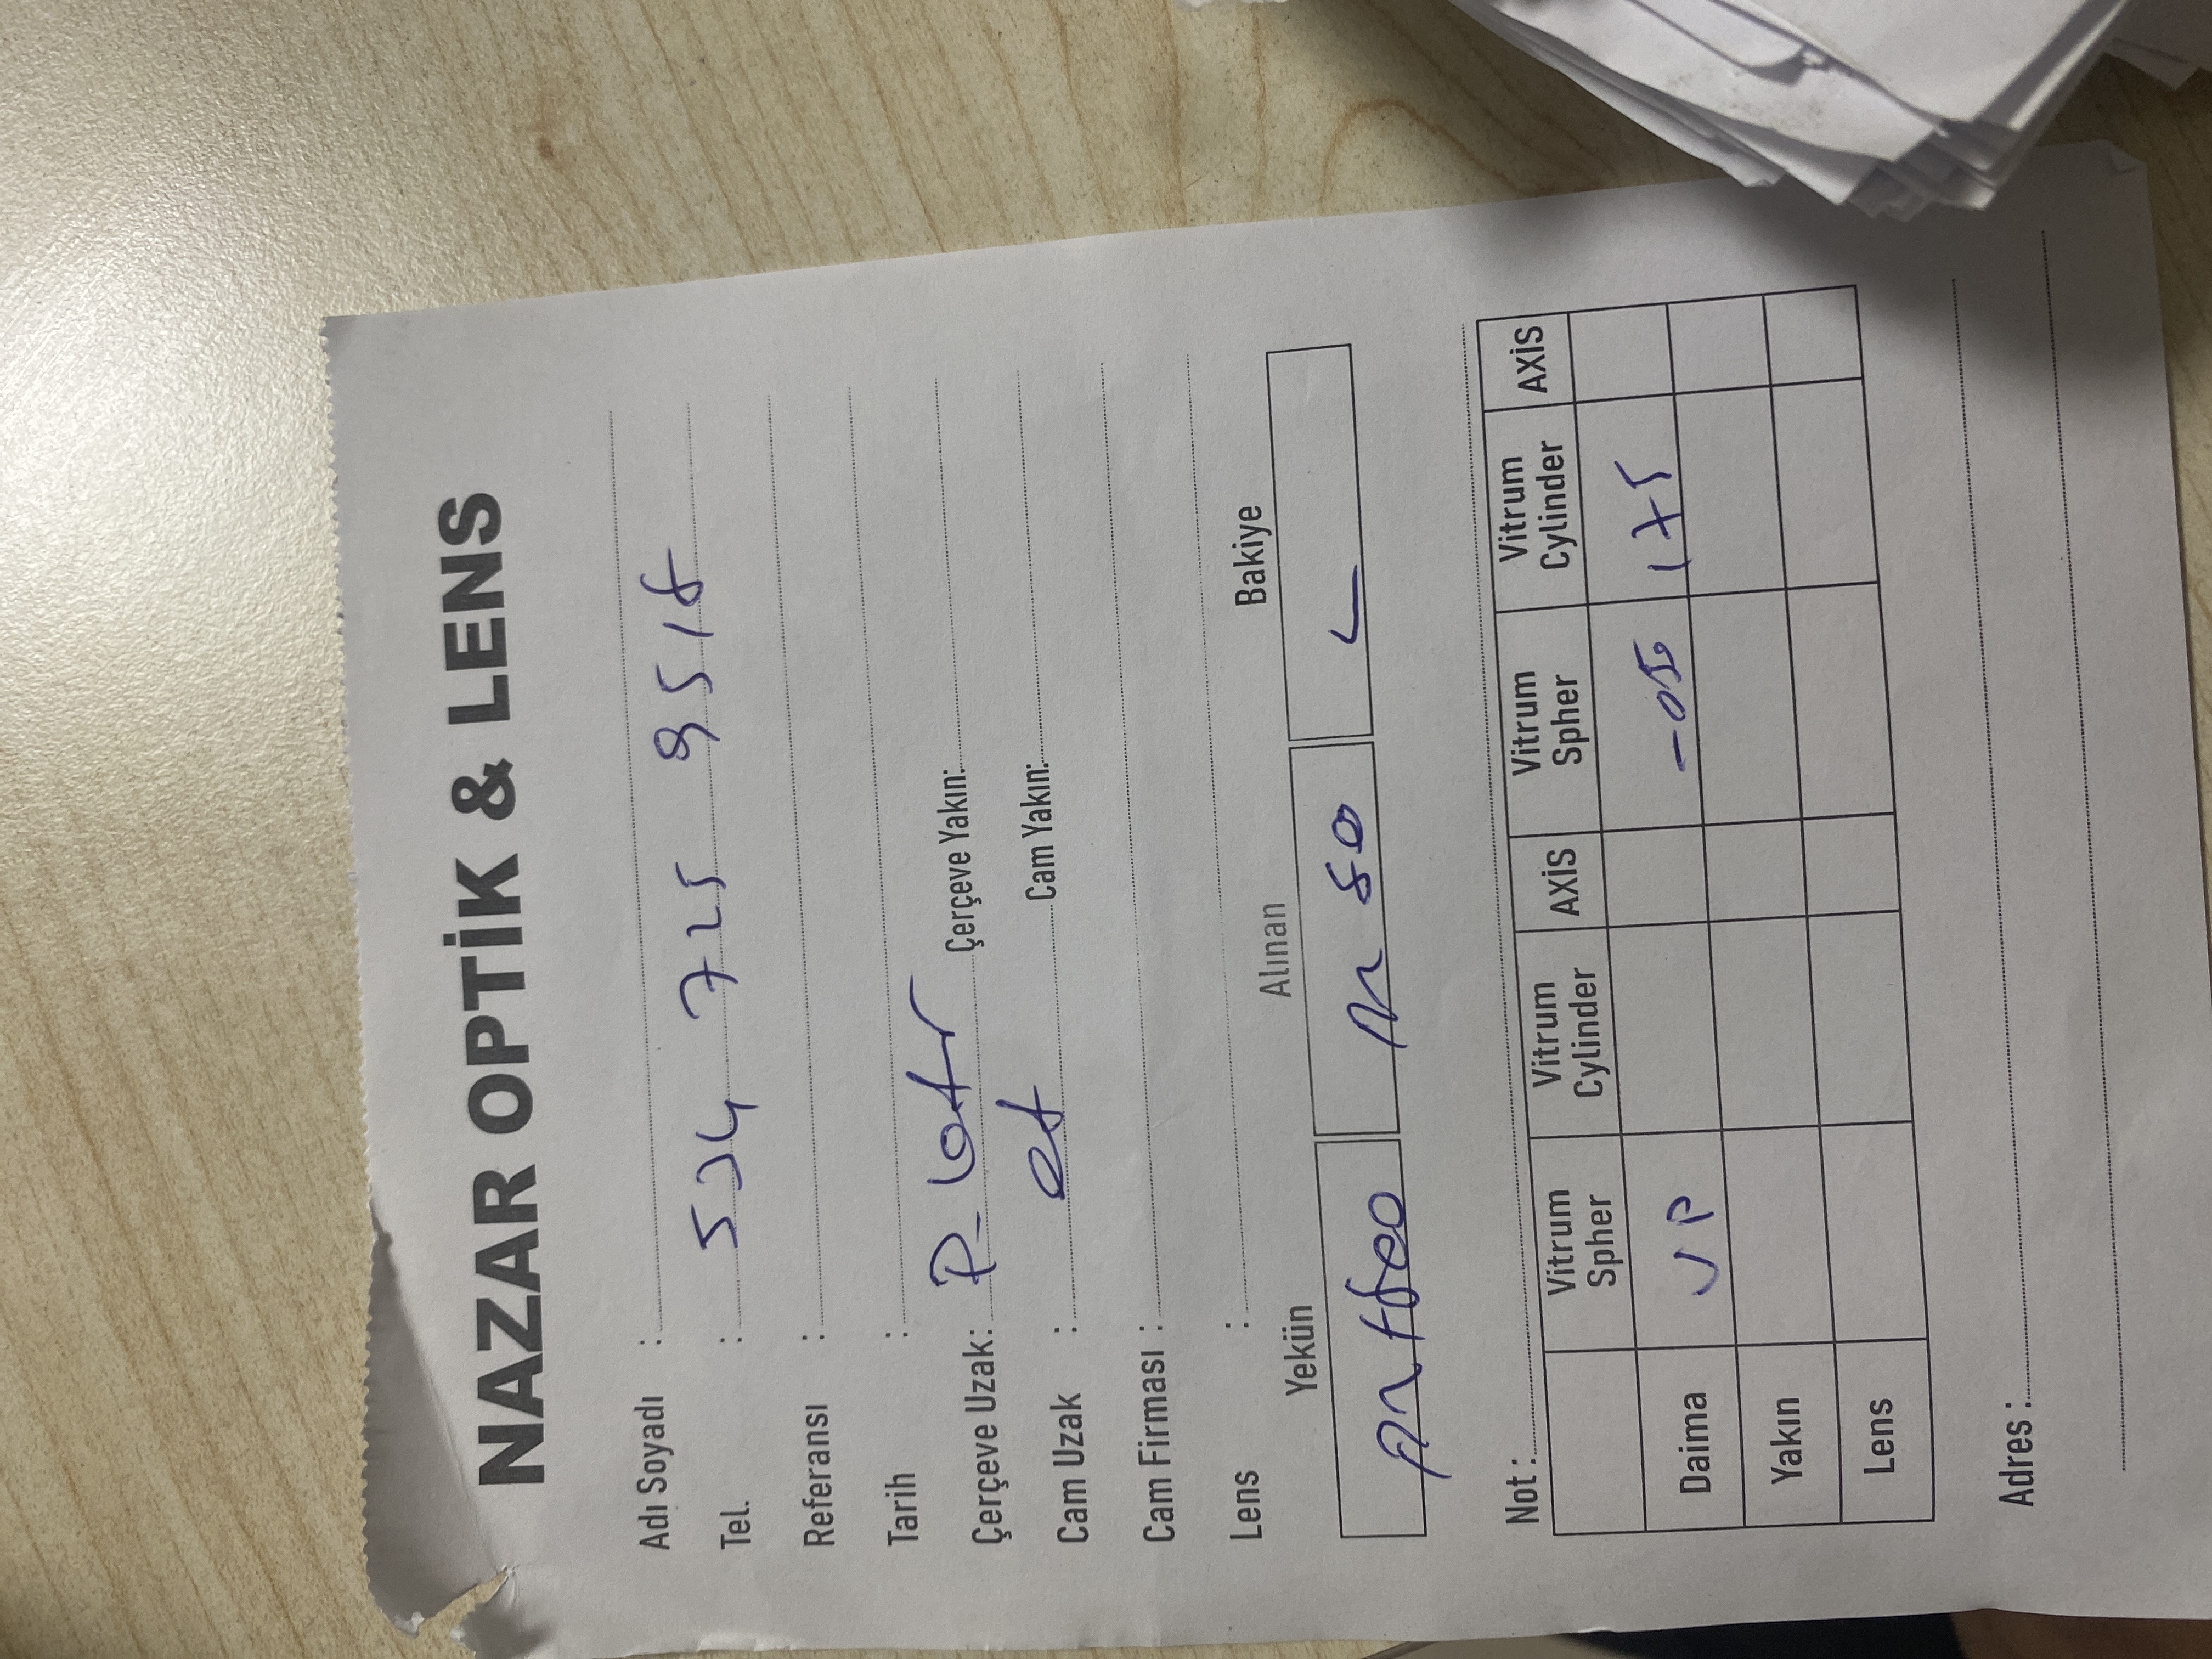 NAZAR OPTİK & LENS
Adı Soyadı :
Tel. : 534 725 9518
Referansı :
Tarih :
Çerçeve Uzak: Çerçeve Yakın:
Cam Uzak : Cam Yakın:
Cam Firması :
Lens :
Yekün Alınan Bakiye
Not :
Vitrum Spher Vitrum Cylinder AXİS Vitrum Spher Vitrum Cylinder AXİS
Daima -050 175
Yakın
Lens
Adres :